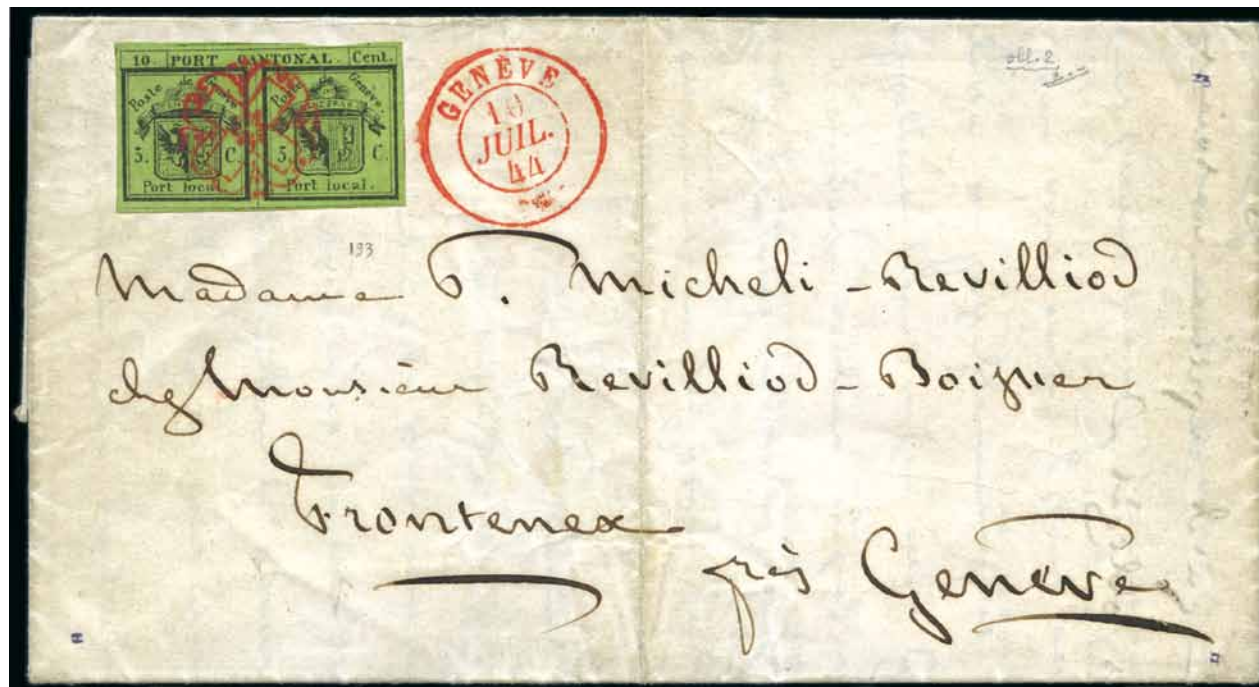 10. PORT CANTONAL. Cent.
Poste de Genève. Poste de Genève.
5. C. 5. C.
Port local. Port local.
GENÈVE
10
JUIL.
44
obl. 2
193
Madame P. Micheli-Revilliod
chez Monsieur Revilliod-Boigner
Frontenex
près Genève